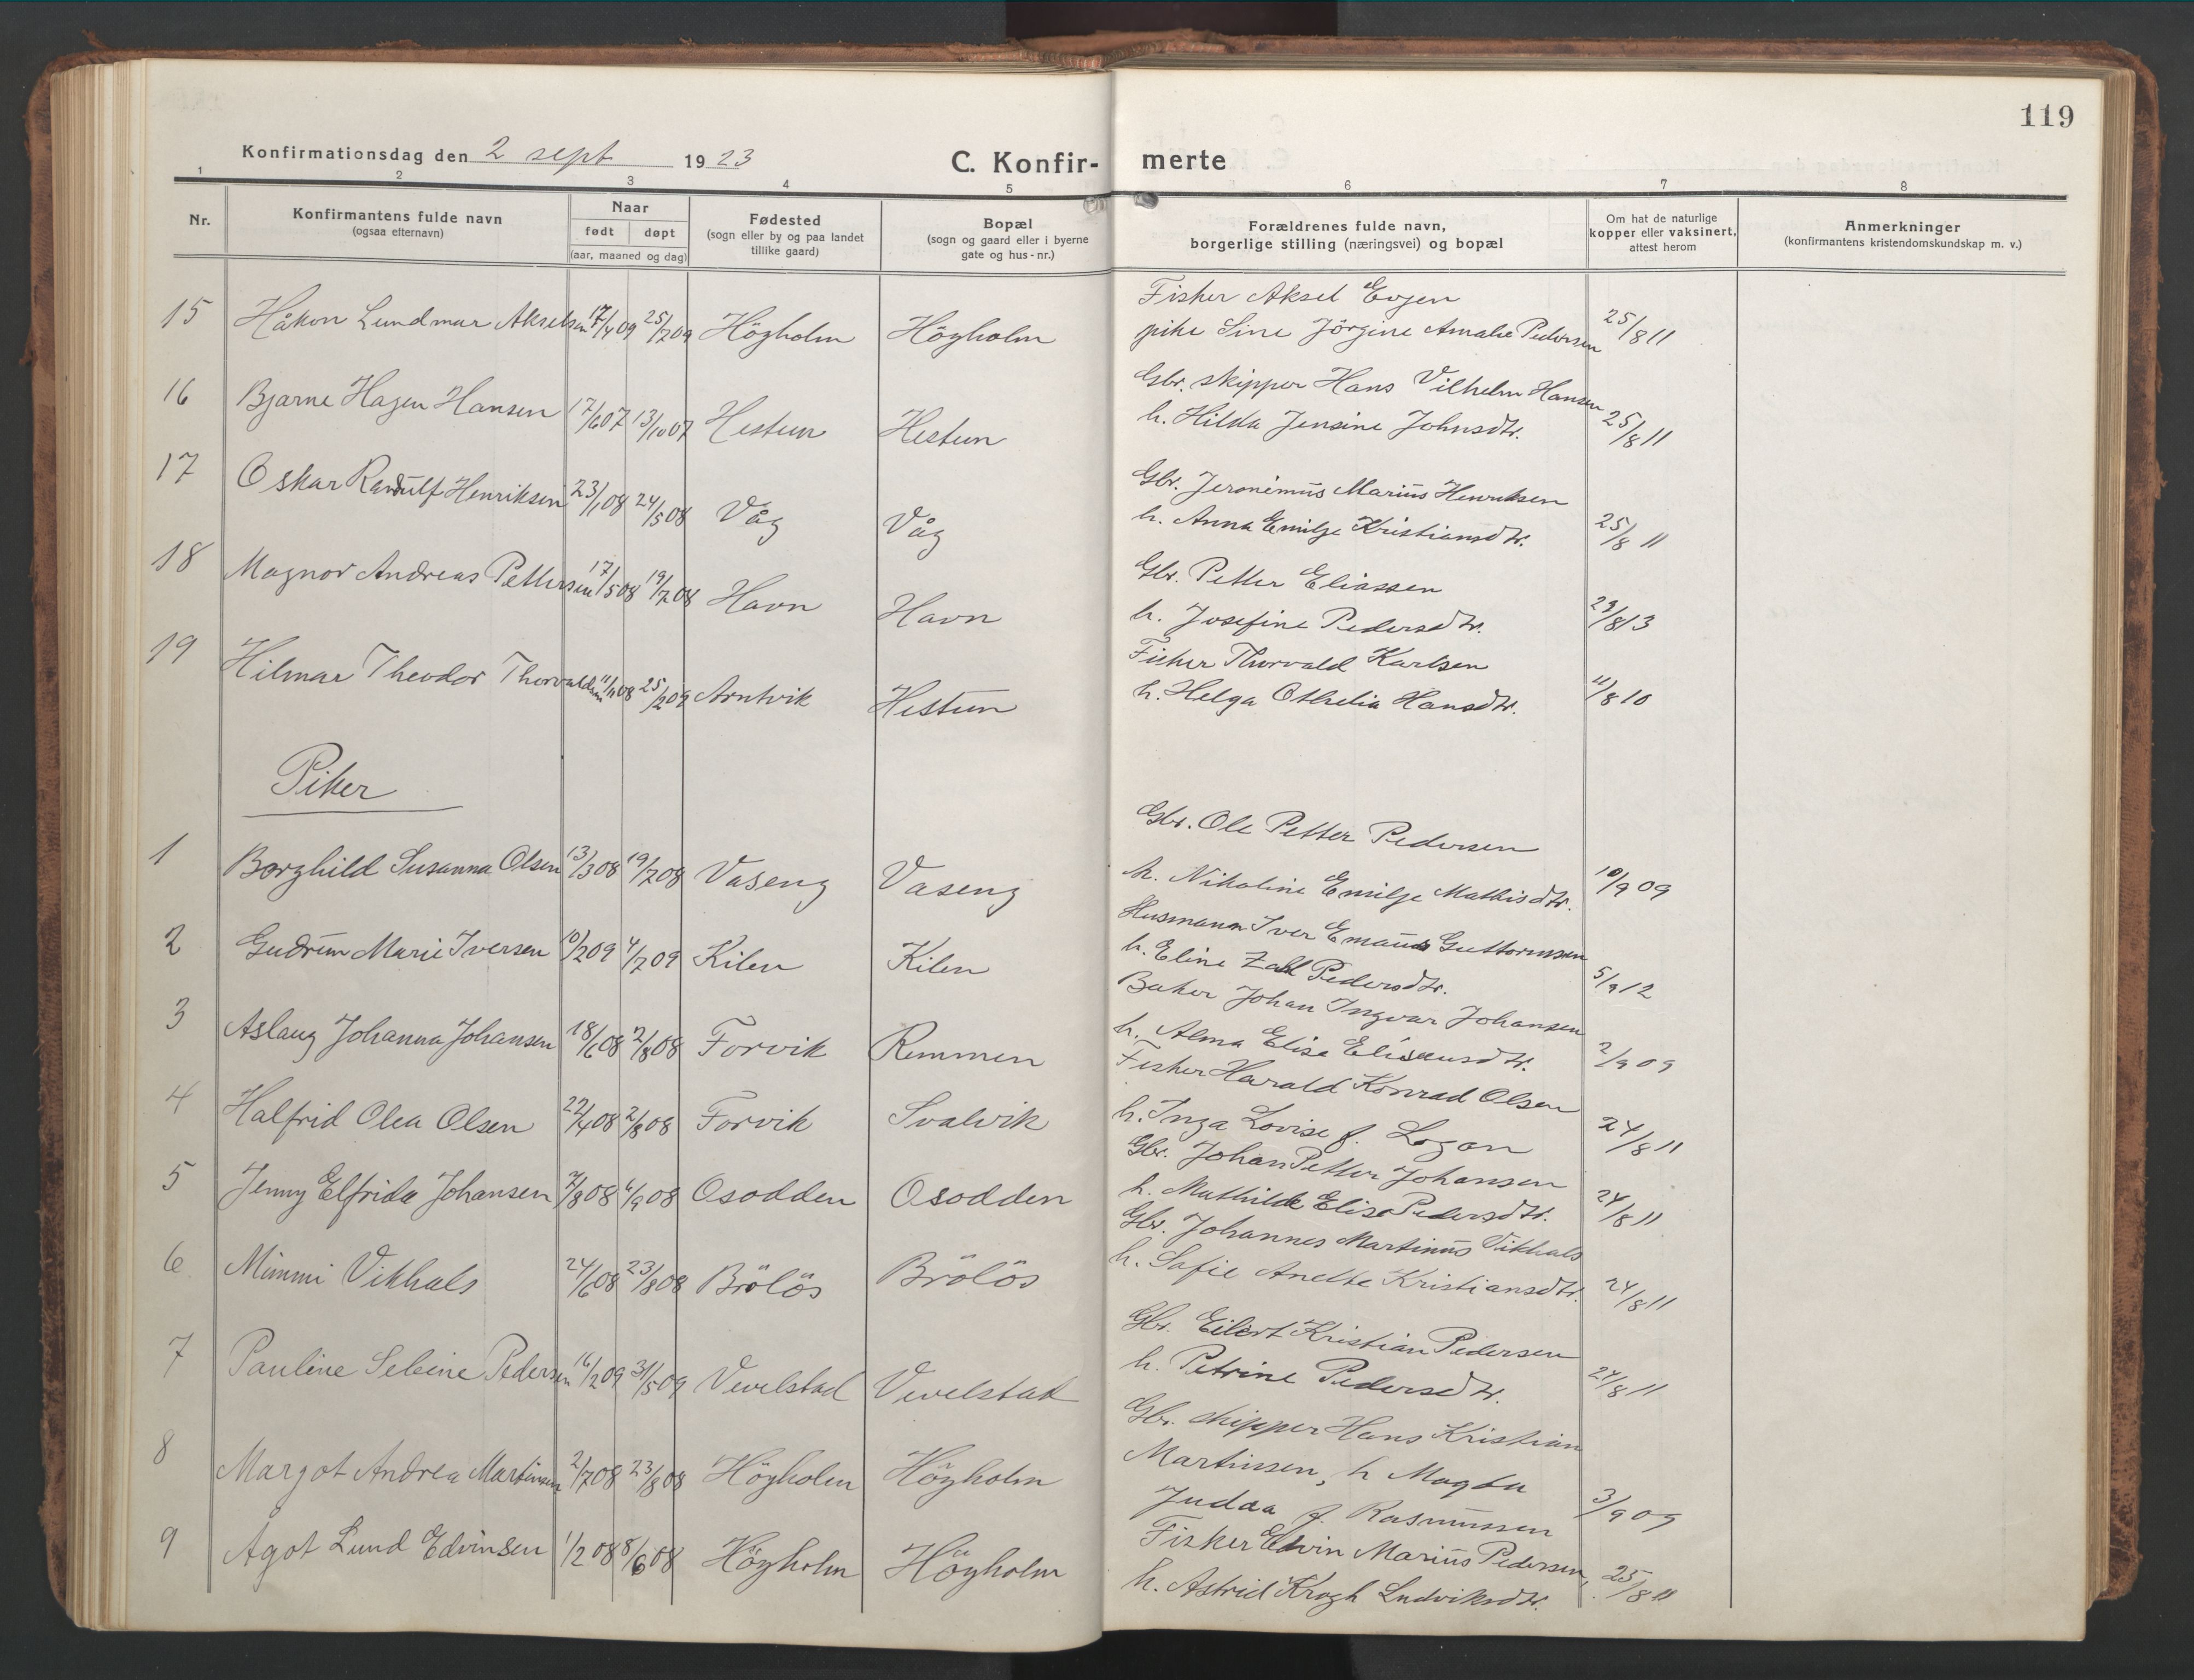 119
Konfirmationsdag den 2 sept 1923 C. Konfir- merte
1 2 3 4 5 6 7 8
Nr.
Konfirmantens fulde navn
(ogsaa efternavn)
Naar
født døpt
(aar, maaned og dag)
Fødested
(sogn eller by og paa landet
tillike gaard)
Bopæl
(sogn og gaard eller i byerne
gate og hus-nr.)
Forældrenes fulde navn,
borgerlige stilling (næringsvei) og bopæl
Om hat de naturlige
kopper eller vaksinert,
attest herom
Anmerkninger
(konfirmantens kristendomskundskap m. v.)
15 Håkon Lundmar Akselsen 17/4 09 25/7 09 Högholm Högholm
Fisker Aksel Evjen
pike Sine Jörgine Amalie Pedersen 25/8 11
16 Bjarne Hagen Hansen 17/6 07 13/10 07 Hestun Hestun
Gbr. skipper Hans Vilhelm Hansen
h. Hilda Jensine Johnsdtr. 25/8 11
17 Oskar Randulf Henriksen 23/1 08 24/5 08 Våg Våg
Gbr. Jeronimus Marius Henriksen
h. Anna Emilje Kristiansdtr. 25/8 11
18 Magnor Andreas Pettersen 17/5 08 19/7 08 Havn Havn
Gbr. Petter Eliassen
h. Josefine Pedersdtr. 23/8 13
19 Hilmar Theodor Thorvaldsen 11/11 08 25/7 09 Arntvik Hestun
Fisker Thorvald Karlsen
h. Helga Othelia Hansdtr. 11/8 10
Piker
1 Borghild Susanna Olsen 13/3 08 19/7 08 Vaseng Vaseng
Gbr. Ole Petter Pedersen
h. Nikoline Emilje Mathisdtr. 10/9 09
2 Gudrun Marie Iversen 10/2 09 4/7 09 Kilen Kilen
Husmann Iver Emaus Guttormsen
h. Eline Zahl Pedersdtr. 5/9 12
3 Aslaug Johanna Johansen 18/6 08 2/8 08 Forvik Remmen
Baker Johan Ingvar Johansen
h. Alma Elise Eliseusdtr. 2/9 09
4 Halfrid Olea Olsen 22/4 08 2/8 08 Forvik Svalvik
Fisker Harald Konrad Olsen
h. Inga Lovise f. Logan 24/8 11
5 Jenny Elfrida Johansen 2/8 08 6/9 08 Osodden Osodden
Gbr. Johan Petter Johansen
h. Mathilde Elise Pedersdtr. 24/8 11
6 Mimmi Vikhals 24/6 08 23/8 08 Brölös Brölös
Gbr. Johannes Martinus Vikhals
h. Sofie Anette Kristiansdtr. 24/8 11
7 Pauline Seleine Pedersen 16/2 09 31/5 09 Vevelstad Vevelstad
Gbr. Eilert Kristian Pedersen
h. Petrine Pedersdtr. 24/8 11
8 Margot Andrea Martinsen 2/7 08 23/8 08 Högholm Högholm
Gbr. skipper Hans Kristian
Martinsen, h Magda
Judaa f. Rasmussen 3/9 09
9 Agot Lund Edvinsen 1/2 08 8/6 08 Högholm Högholm
Fisker Edvin Marius Pedersen,
h. Astrid Krogh Ludviksdtr. 25/8 11